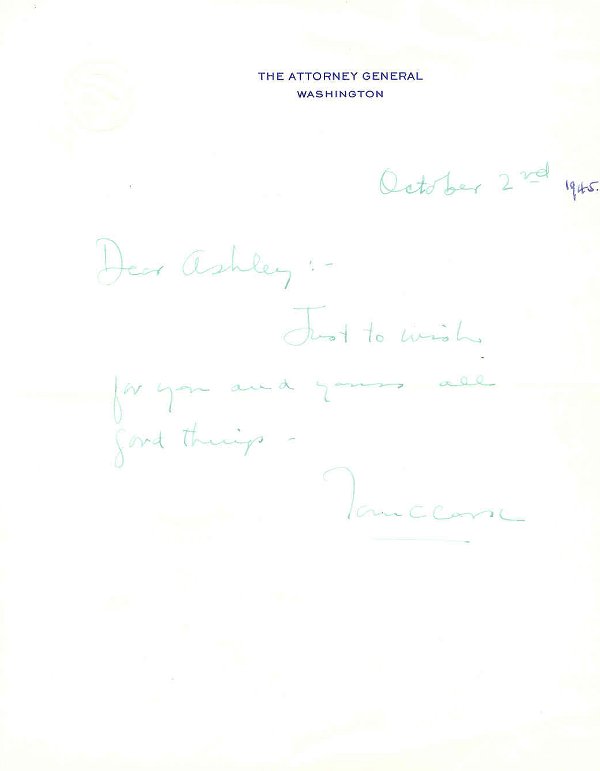 THE ATTORNEY GENERAL
WASHINGTON
October 2nd 1945.
Dear Ashley :-
Just to wish
for you and yours all
good things -
Tom C Clark